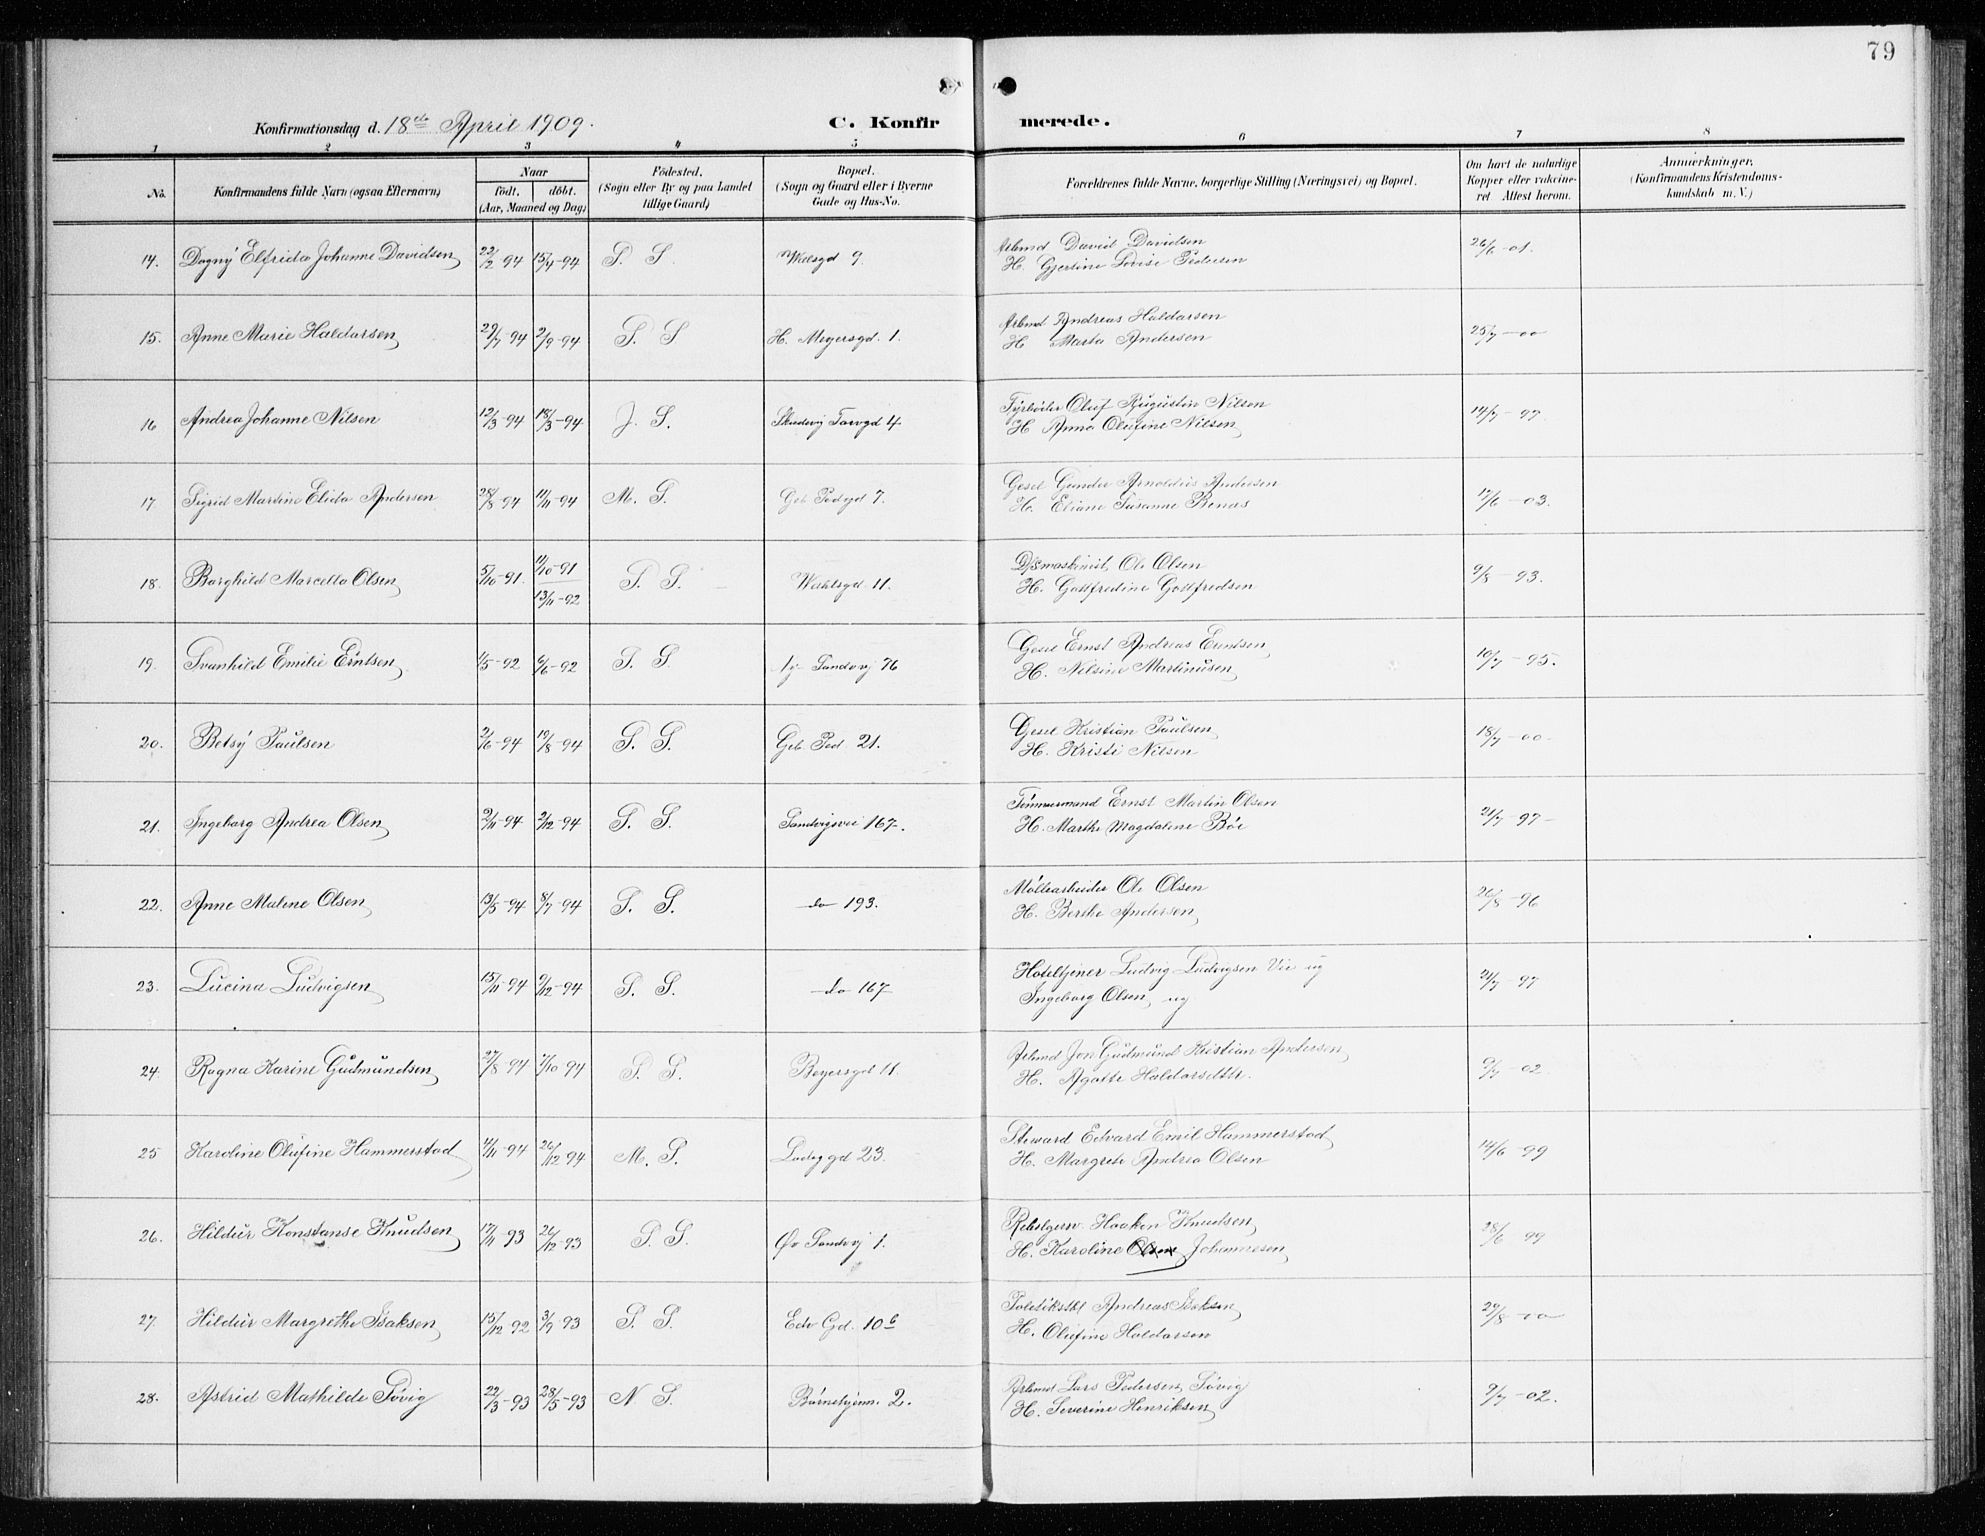 79
Konfirmationsdag d. 18de April 1909.
C. Konfirmerede.
1 2 3 4 5 6 7 8
No.
Konfirmandens fulde Navn (ogsaa Efternavn)
Naar
födt, döbt.
(Aar, Maaned og Dag)
Födested,
(Sogn eller By og paa Landet
tillige Gaard)
Bopæl.
(Sogn og Gaard eller i Byerne
Gade og Hus-No.
Forældrenes fulde Navne, borgerlige Stilling (Næringsvei) og Bopæl.
Om havt de naturlige
Kopper eller vakcine-
ret Attest herom.
Anmærkninger,
(Konfirmandens Kristendoms-
kundskab m. V.)
14. Dagny Elfrida Johanne Davidsen 22/2 94 15/4-94 S. S. 9. Arbmd David Davidsen 26/6-01.
H. Gjertine Lovise Pedersen
15. Anne Marie Haldorsen 29/7 94 2/9-94 S. S H. Meyersgd. 1. Arbmd Andreas Haldorsen 25/7-00
H Marta Andersen
16 Andrea Johanne Nilsen 12/3-94 18/3-94 J. S. Skudevig Torvgd 4 Fyrböder Oluf Augustin Nilsen 14/7-97
H Anna Olufine Nilsen
17. Sigrid Martine Elida Andersen 28/8 94 11/11-94 M. S. 7. Gesel Gunder Arnoldus Andersen 17/6-03.
H. Eliane Susanne
18. Borghild Marcella Olsen 5/10-91. 11/10-91 S. S. Wesselsgd. 11. Dsmaskinist, Ole Olsen 9/8-93.
13/11-92 H. Gottfredine Gottfredsen
19. Svanhild Emilie Erntsen 1/5-92 6/6-92 S. S. Sandvig 76 Gesel Ernst Andreas Erntsen 10/7-95.
H. Nilsine Martinusen
20. Betsy Paulsen 2/6-94 19/8-94 S. S. 21. Gesel Kristian Paulsen 18/7-00
H. Kristi Nilsen
21. Ingeborg Andrea Olsen 2/11-94 2/12-94 S. S. Sandvigsvei 167. Tömmermand Ernst Martin Olsen 21/7-97
H. Marthe Magdalene Böe
22. Anne Malene Olsen 13/5-94 8/7-94 S. S. do 193. Möllearbeider Ole Olsen 26/8-96
H. Berthe Andersen
23. Lucina Ludvigsen 15/11-94 9/12-94 S. S. do 167 Hoteltjener Ludvig Ludvigsen Vie ug 21/7-97
Ingeborg Olsen ug
24. Ragna Karine Gudmundsen 27/8-94 7/10-94 S. S. Beyersgd 11. Arbmd Jon Gudmund Kristian Andersen 9/7-02
H. Agatte Haldorsdttr.
25 Karoline Olufine Hammerstad 4/11-94 26/12 94 M. S. Ladeggd 23. Steward Edvard Emil Hammerstad 14/6-99
H. Margrete Andrea Olsen
26. Hildur Konstanse Knudsen 17/11-93 26/12-93 S. S. Øv Sandvig 1. Haakon Knudsen 28/6 99
H. Karoline Olsen Johannesen
27. Hildur Margrethe Isaksen 15/12-92 3/9 93 S. S. Edv Gd. 10 Andreas Isaksen 29/8-00
H. Olufine Haldorsen
28. Astrid Mathilde Søvig 22/3-93 28/5-93 N S. Børnehjem. 2. Arbmd Lars Pedersen Søvig 9/7-02.
H. Severine Henriksen